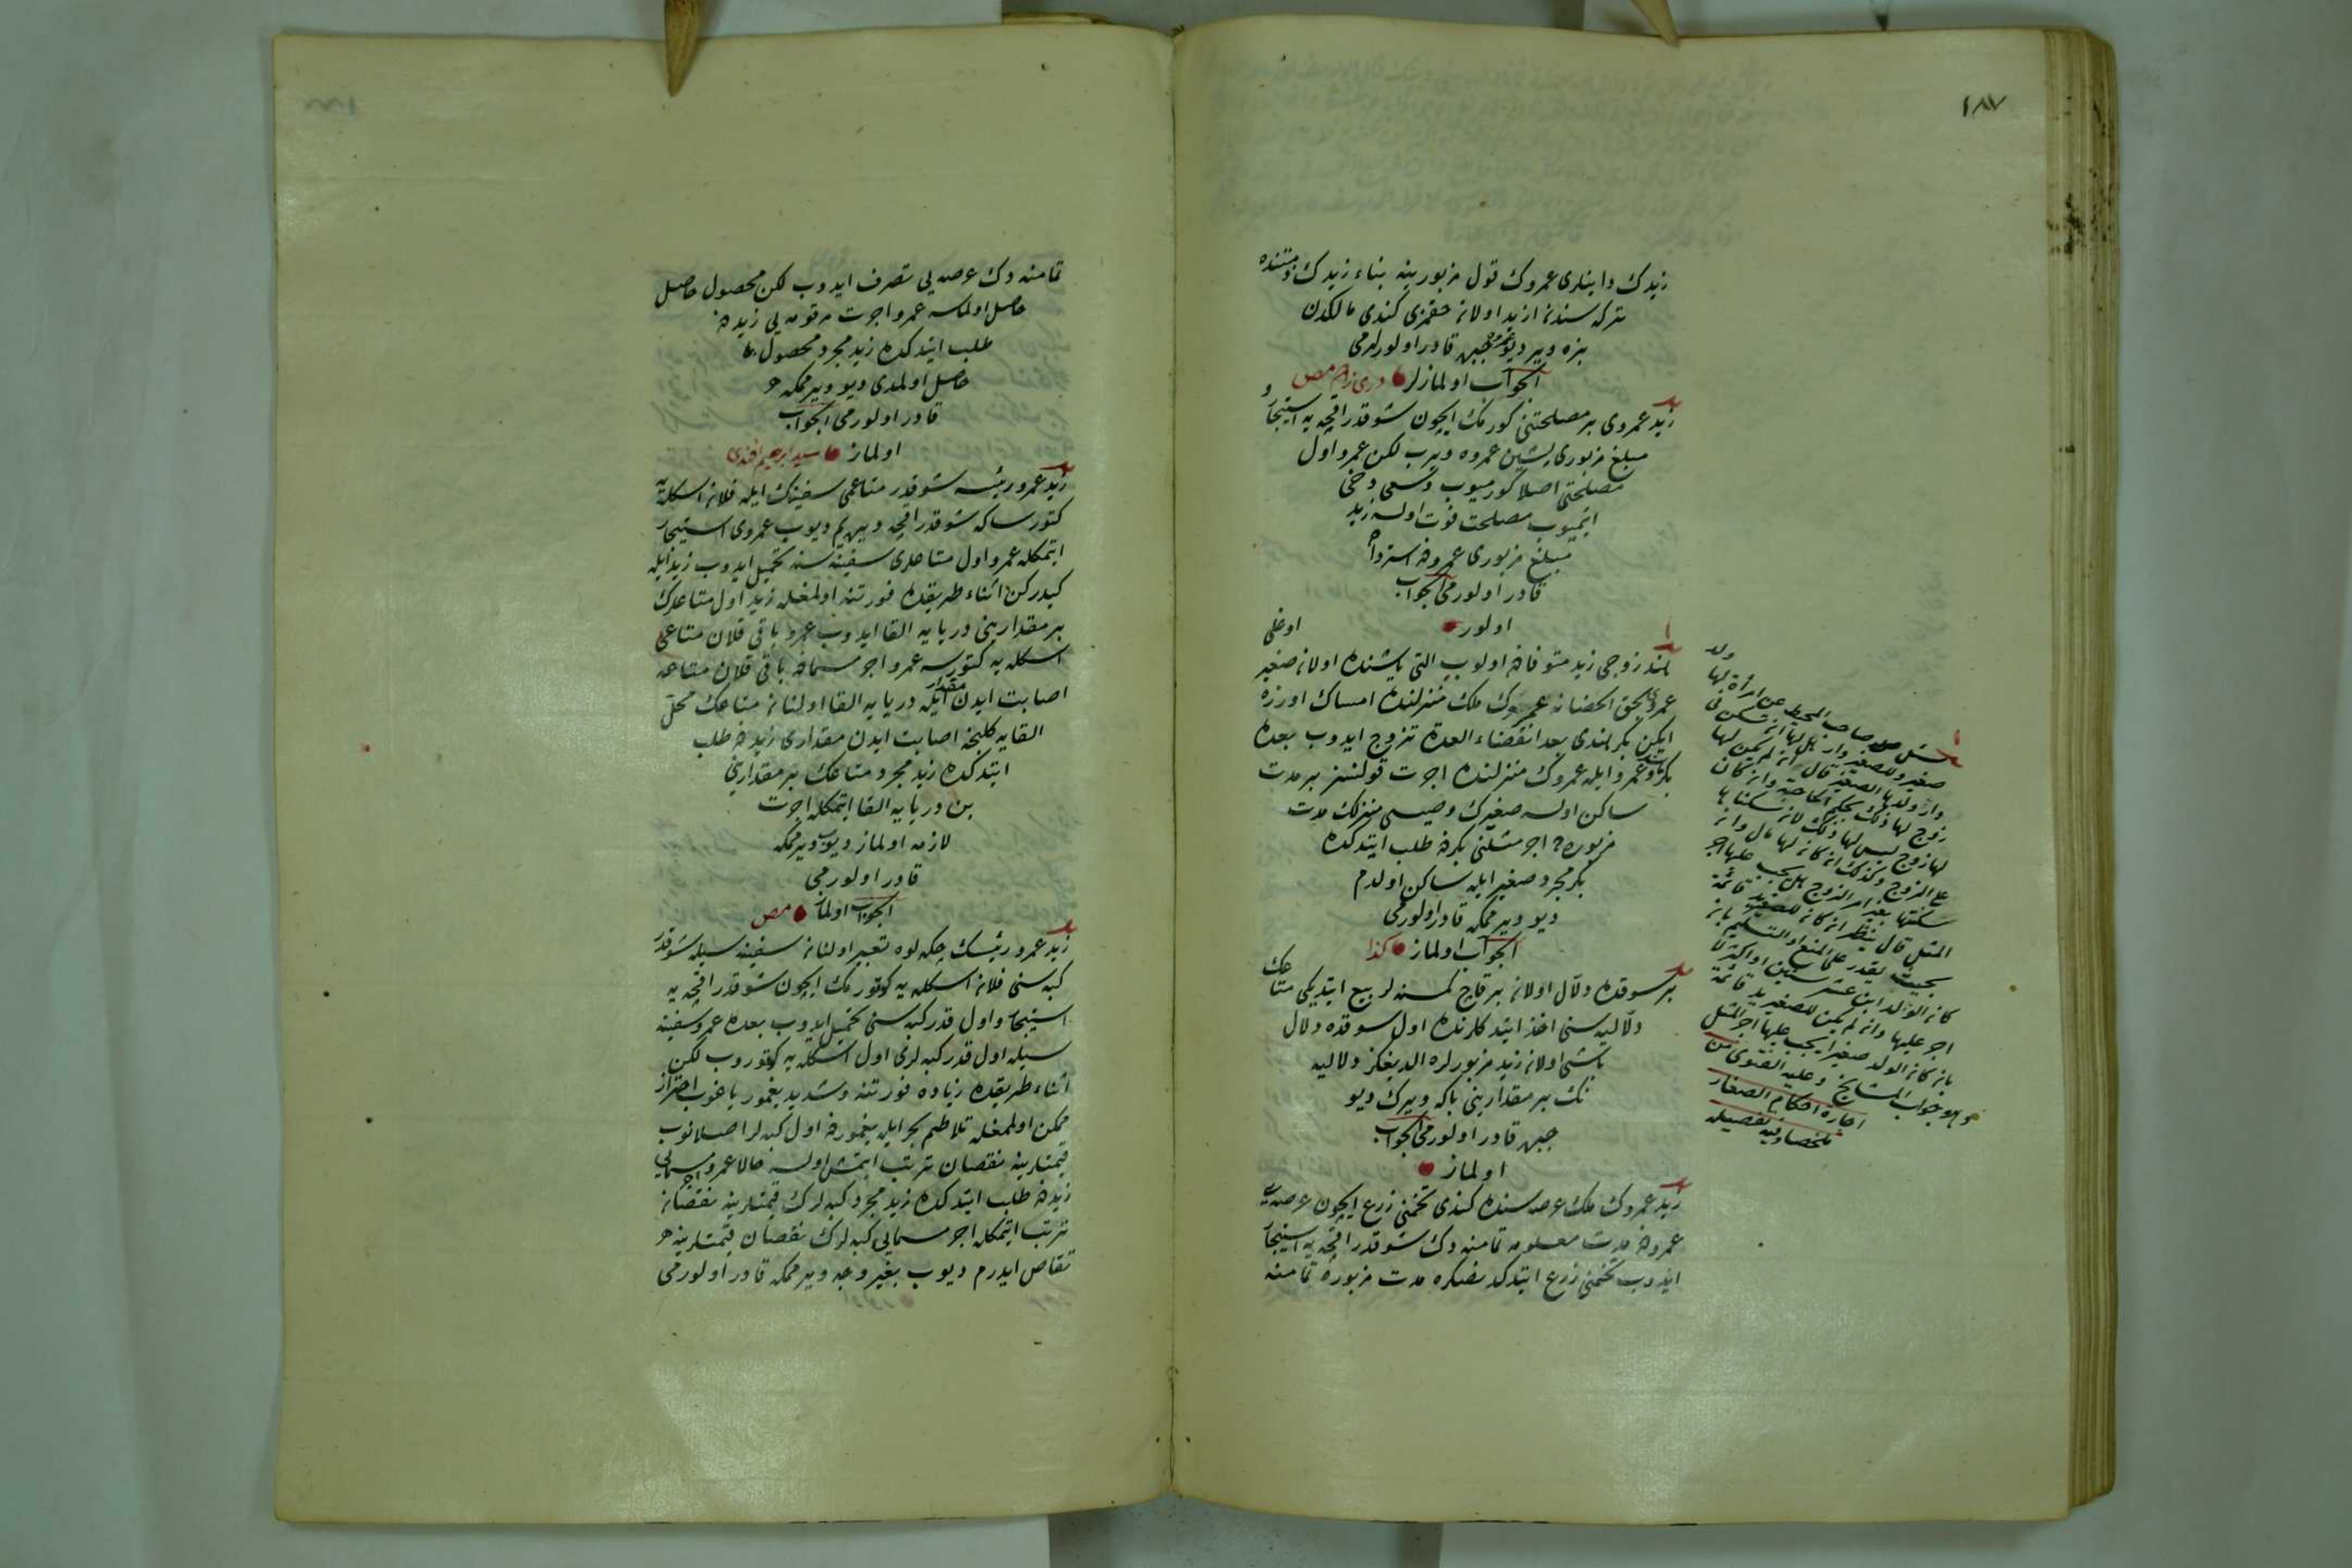 ١٨٧
زيدك داينلرى عمروك قول مزبورينه بناء زيدك ذمتنده
تركه سندن ازيد اولان حقمزى كندى مالكدن
بزه وير ديو عمروه جبره قادر اولورلرمى
الجواب اولمازلر
زيد عمروى بر مصلحتنى كورمك ايچون شو قدر اقچه يه استيجار و
مبلغ مزبورى پشين عمروه ويرب لكن عمرو اول
مصلحتى اصلا كورميوب وسعى دخى
ايتميوب مصلحت فوت اولسه زيد
مبلغ مزبورى عمرودن استرداده
قادر اولورمى الجواب
اولور
هند زوجى زيد متوفادن اولوب التى ياشنده اولان صغير اوغلى
عمروى بحق الحضانه عمروك ملك منزلنده امساك اوزره
ايكن بكر هندى بعد انقضاء العدة تزوج ايدوب بعده
بكر هند و عمرو ايله عمروك منزلنده اجرت قولنسز بر مدت
ساكن اولسه صغيرك وصيسى منزلك مدت
مزبوره ده اجر مثلنى بكردن طلب ايتدكده
بكر مجرد صغير ايله ساكن اولدم
ديو ويرممكه قادر اولورمى
الجواب اولماز كذا
بر سوقده دلال اولان بر قاچ كمسنه لر بيع ايتديكى متاعك
دلاليه سنى اخذ ايتدكلرنده اول سوقده دلال
باشى اولان زيد مزبورلره الديغكز دلاليه
نك بر مقدارينى بكا ويرك ديو
جبره قادر اولورمى الجواب
اولماز
زيد عمروك ملك عرصه سنده كندى تخمنى زرع ايچون عرصه يى
عمرودن مدت معلومه تمامنه دك شو قدر اقچه يه استيجار
ايدوب تخمنى زرع ايتدكدنصكره مدت مزبوره تمامنه
سئل صاحب المحيط عن امرأة لها ولد
صغير وللصغير دار هل لها ان تسكن فى
دار ولدها الصغير قال ان لم يكن لها
زوج لها ذلك بحكم الحاجة وان كان
لها زوج ليس لها ذلك لان سكناها
على الزوج وكذلك ان كان لها مال وان
سكنتها بغير امر الزوج هل يجب عليها اجر
المثل قال ينظر ان كان للصغير يد قائمة
بحيث يقدر على المنع او التسليم بان
كان الولد ابن عشر سنين او اكثر لا
اجر عليها وان لم يكن للصغير يد قائمة
بان كان الولد صغيرا يجب عليها اجر المثل
وهو جواب المشايخ وعليه الفتوى من
اجارة احكام الصغار
ملخصا وفيه تفصيله
تمامنه دك عرصه يى تصرف ايدوب لكن محصول حاصل
حاصل اولماسه عمرو اجرت مرقومه يى زيددن
طلب ايتدكده زيد مجرد محصول
حاصل اولمدى ديو ويرممكه
قادر اولورمى الجواب
اولماز سيد ابرهيم افندى
زيد عمرو رئيسه شو قدر متاعمى سفينه ك ايله فلان اسكله يه
كتورسك شو قدر اقچه ويره يم ديوب عمروى استيجار
ايتمكله عمرو اول متاعلرى سفينه سنه تحميل ايدوب زيد ايله
كيدركن اثناء طريقده فورتنه اولمغله زيد اول متاعلرك
بر مقدارينى دريايه القا ايدوب عمرو باقى قلان متاعى
اسكله يه كتورسه عمرو اجر مسمادن باقى قلان متاعه
اصابت ايدن مقدار ايله دريايه القا اولنان متاعك محل
القايه كلنجه اصابت ايدن مقدارى زيددن طلب
ايتدكده زيد مجرد متاعك بر مقدارينى
بن دريايه القا ايتمكله اجرت
لازم اولماز ديو ويرممكه
قادر اولورمى
الجواب اولماز
زيد عمرو رئيسك چكه لوه تعبير اولنان سفينه سيله شو قدر
كبه سنى فلان اسكله يه كوتورمك ايچون شو قدر اقچه يه
استيجار و اول قدر كبه سنى تحميل ايدوب بعده عمرو سفينه
سيله اول قدر كبه لرى اول اسكله يه كوتوروب لكن
اثناء طريقده زياده فورتنه و شديد يغمور ياغوب احتراز
ممكن اولمامغله تلاطم بحر ايله يغموردن اول كبه لر اصلانوب
قيمتلرينه نقصان ترتب ايتمش اولسه حالا عمرو اجر مسمايى
زيددن طلب ايتدكده زيد مجرد كبه لرك قيمتلرينه نقصان
ترتب ايتمكله اجر مسمايى كبه لرك نقصان قيمتلرينه
تقاص ايدرم ديوب بغير وجه ويرممكه قادر اولورمى